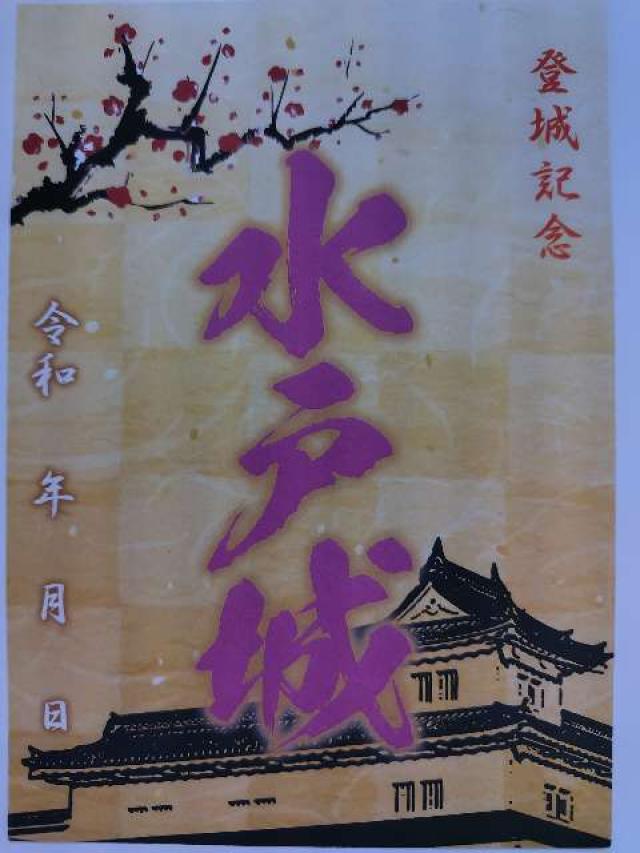 登城記念
水戸城
令和 年 月 日